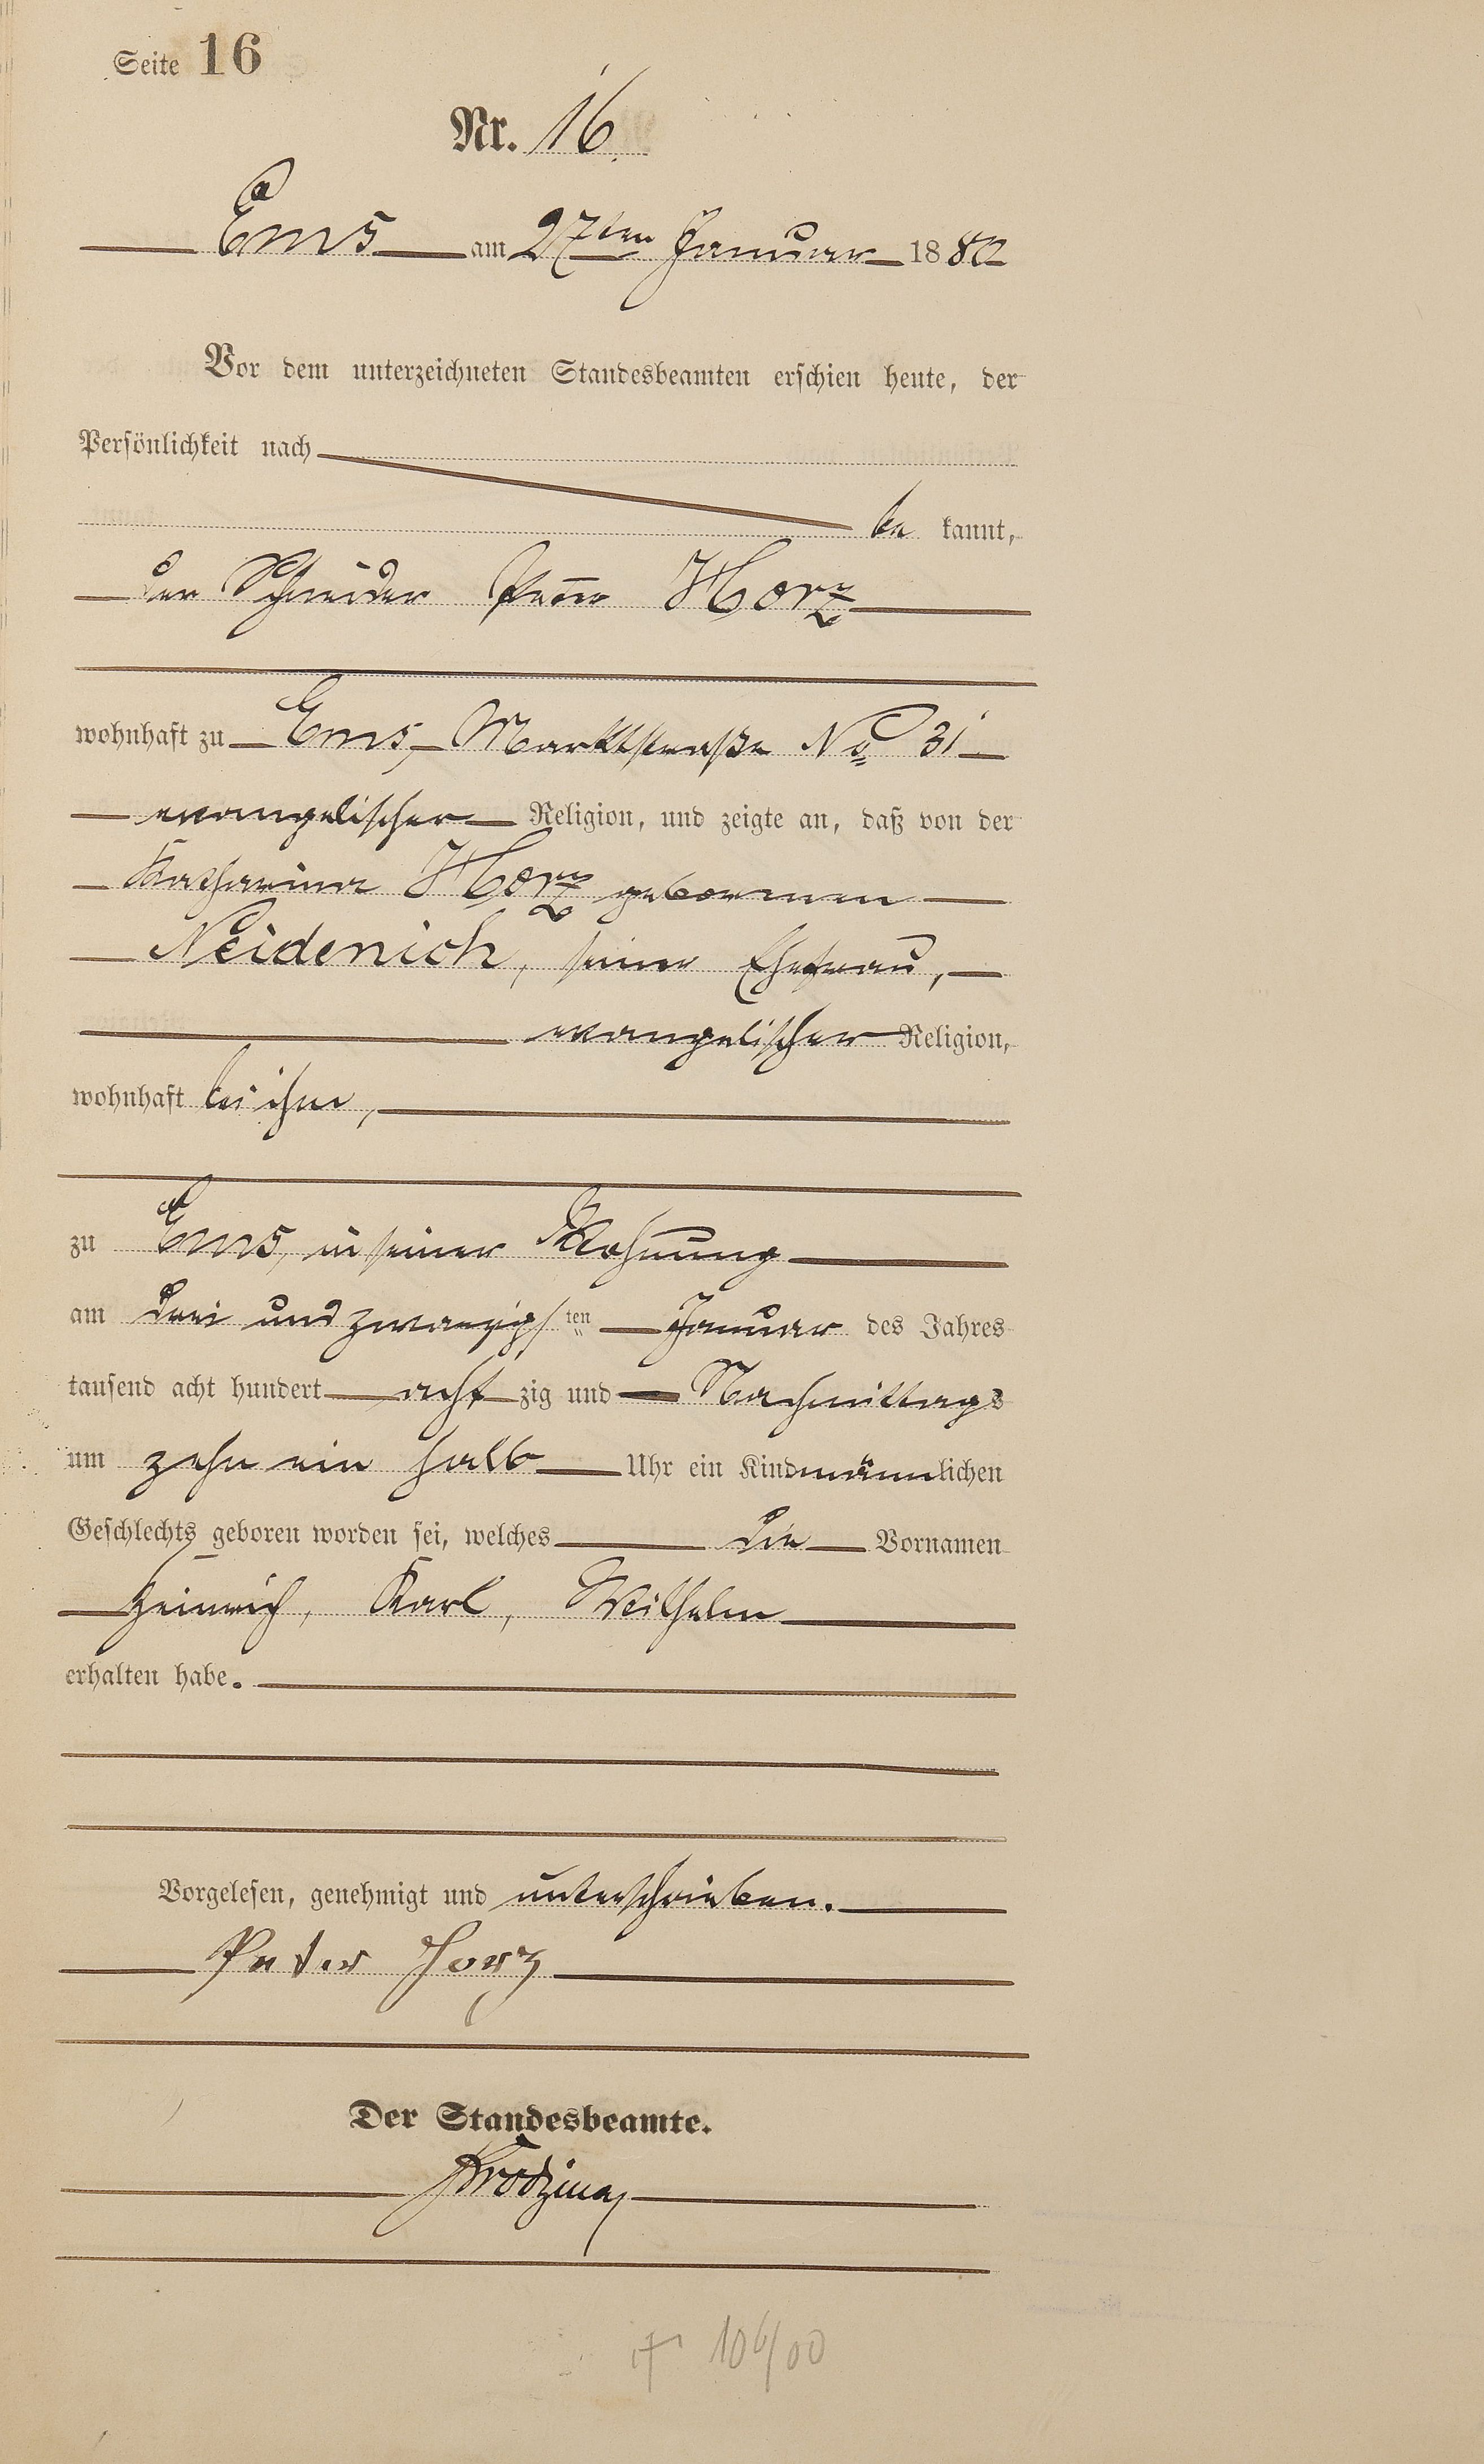 Seite 16
Nr. 16.
Ems am 27ten Januar 1880
Vor dem unterzeichneten Standesbeamten erschien heute, der
Persönlichkeit nach
be kannt,
der Schneider Peter Horz
wohnhaft zu Ems, Marktstraße No 31
evangelischer Religion, und zeigte an, daß von der
Katharina Horz geborenen
Neidenich, seiner Ehefrau,
evangelischer Religion,
wohnhaft bei ihm,
zu Ems, in seiner Wohnung
am drei und zwanzigsten Januar des Jahres
tausend acht hundert acht zig und Nachmittags
um zehn ein halb Uhr ein Kind männlichen
Geschlechts geboren worden sei, welches die Vornamen
Heinrich, Karl, Wilhelm
erhalten habe.
Vorgelesen, genehmigt und unterschrieben.
Peter Horz
Der Standesbeamte.
† 106/00